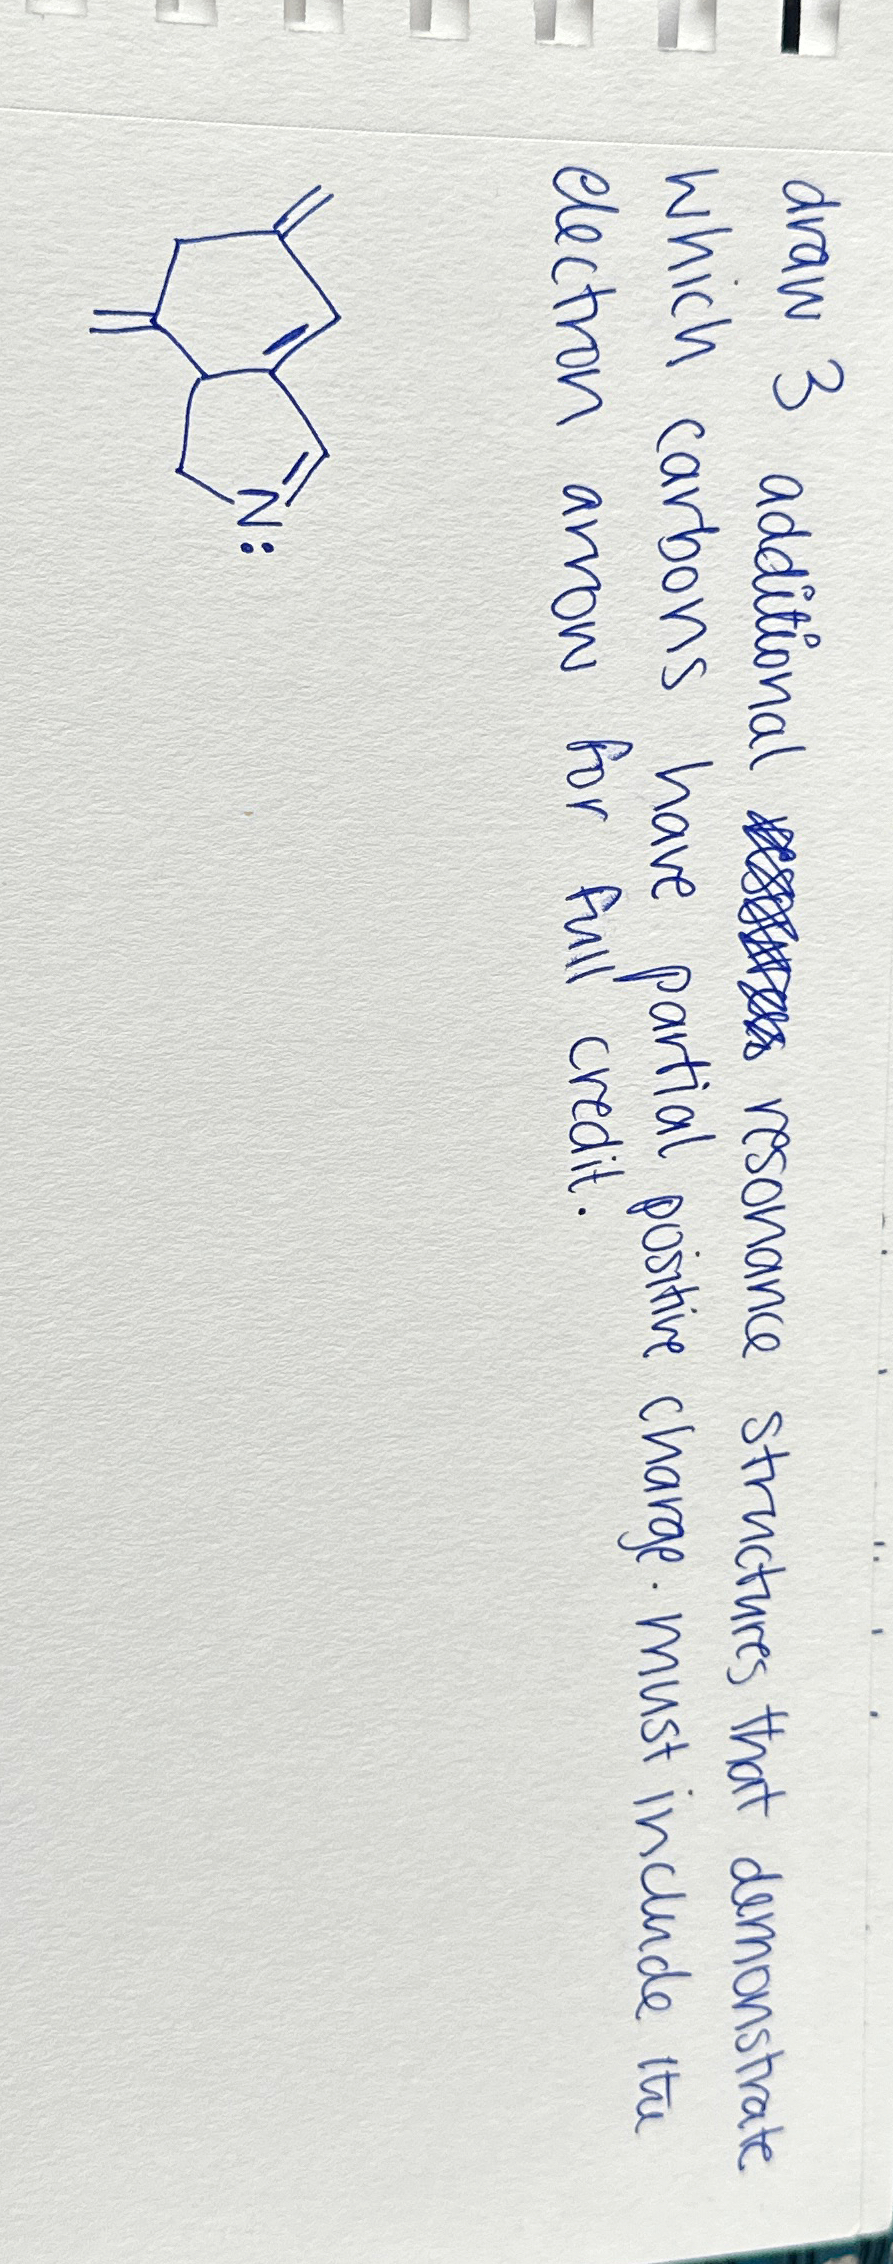 draw 3 additional resonance structures that demonstrate
which carbons have partial positive charge. must include the
electron arrow for full credit.
N: